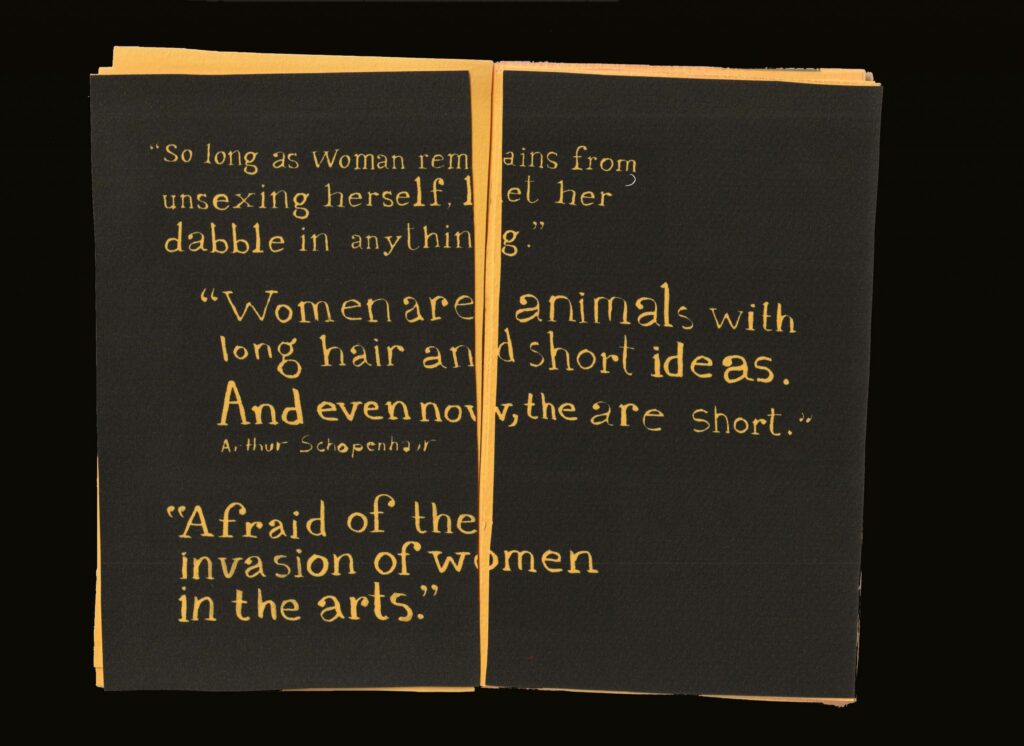 “So long as Woman remains from
unsexing herself, let her
dabble in anything.”
“Women are animals with
long hair and short ideas.
And even now, the are short.”
Arthur Schopenhair
“Afraid of the
invasion of women
in the arts.”